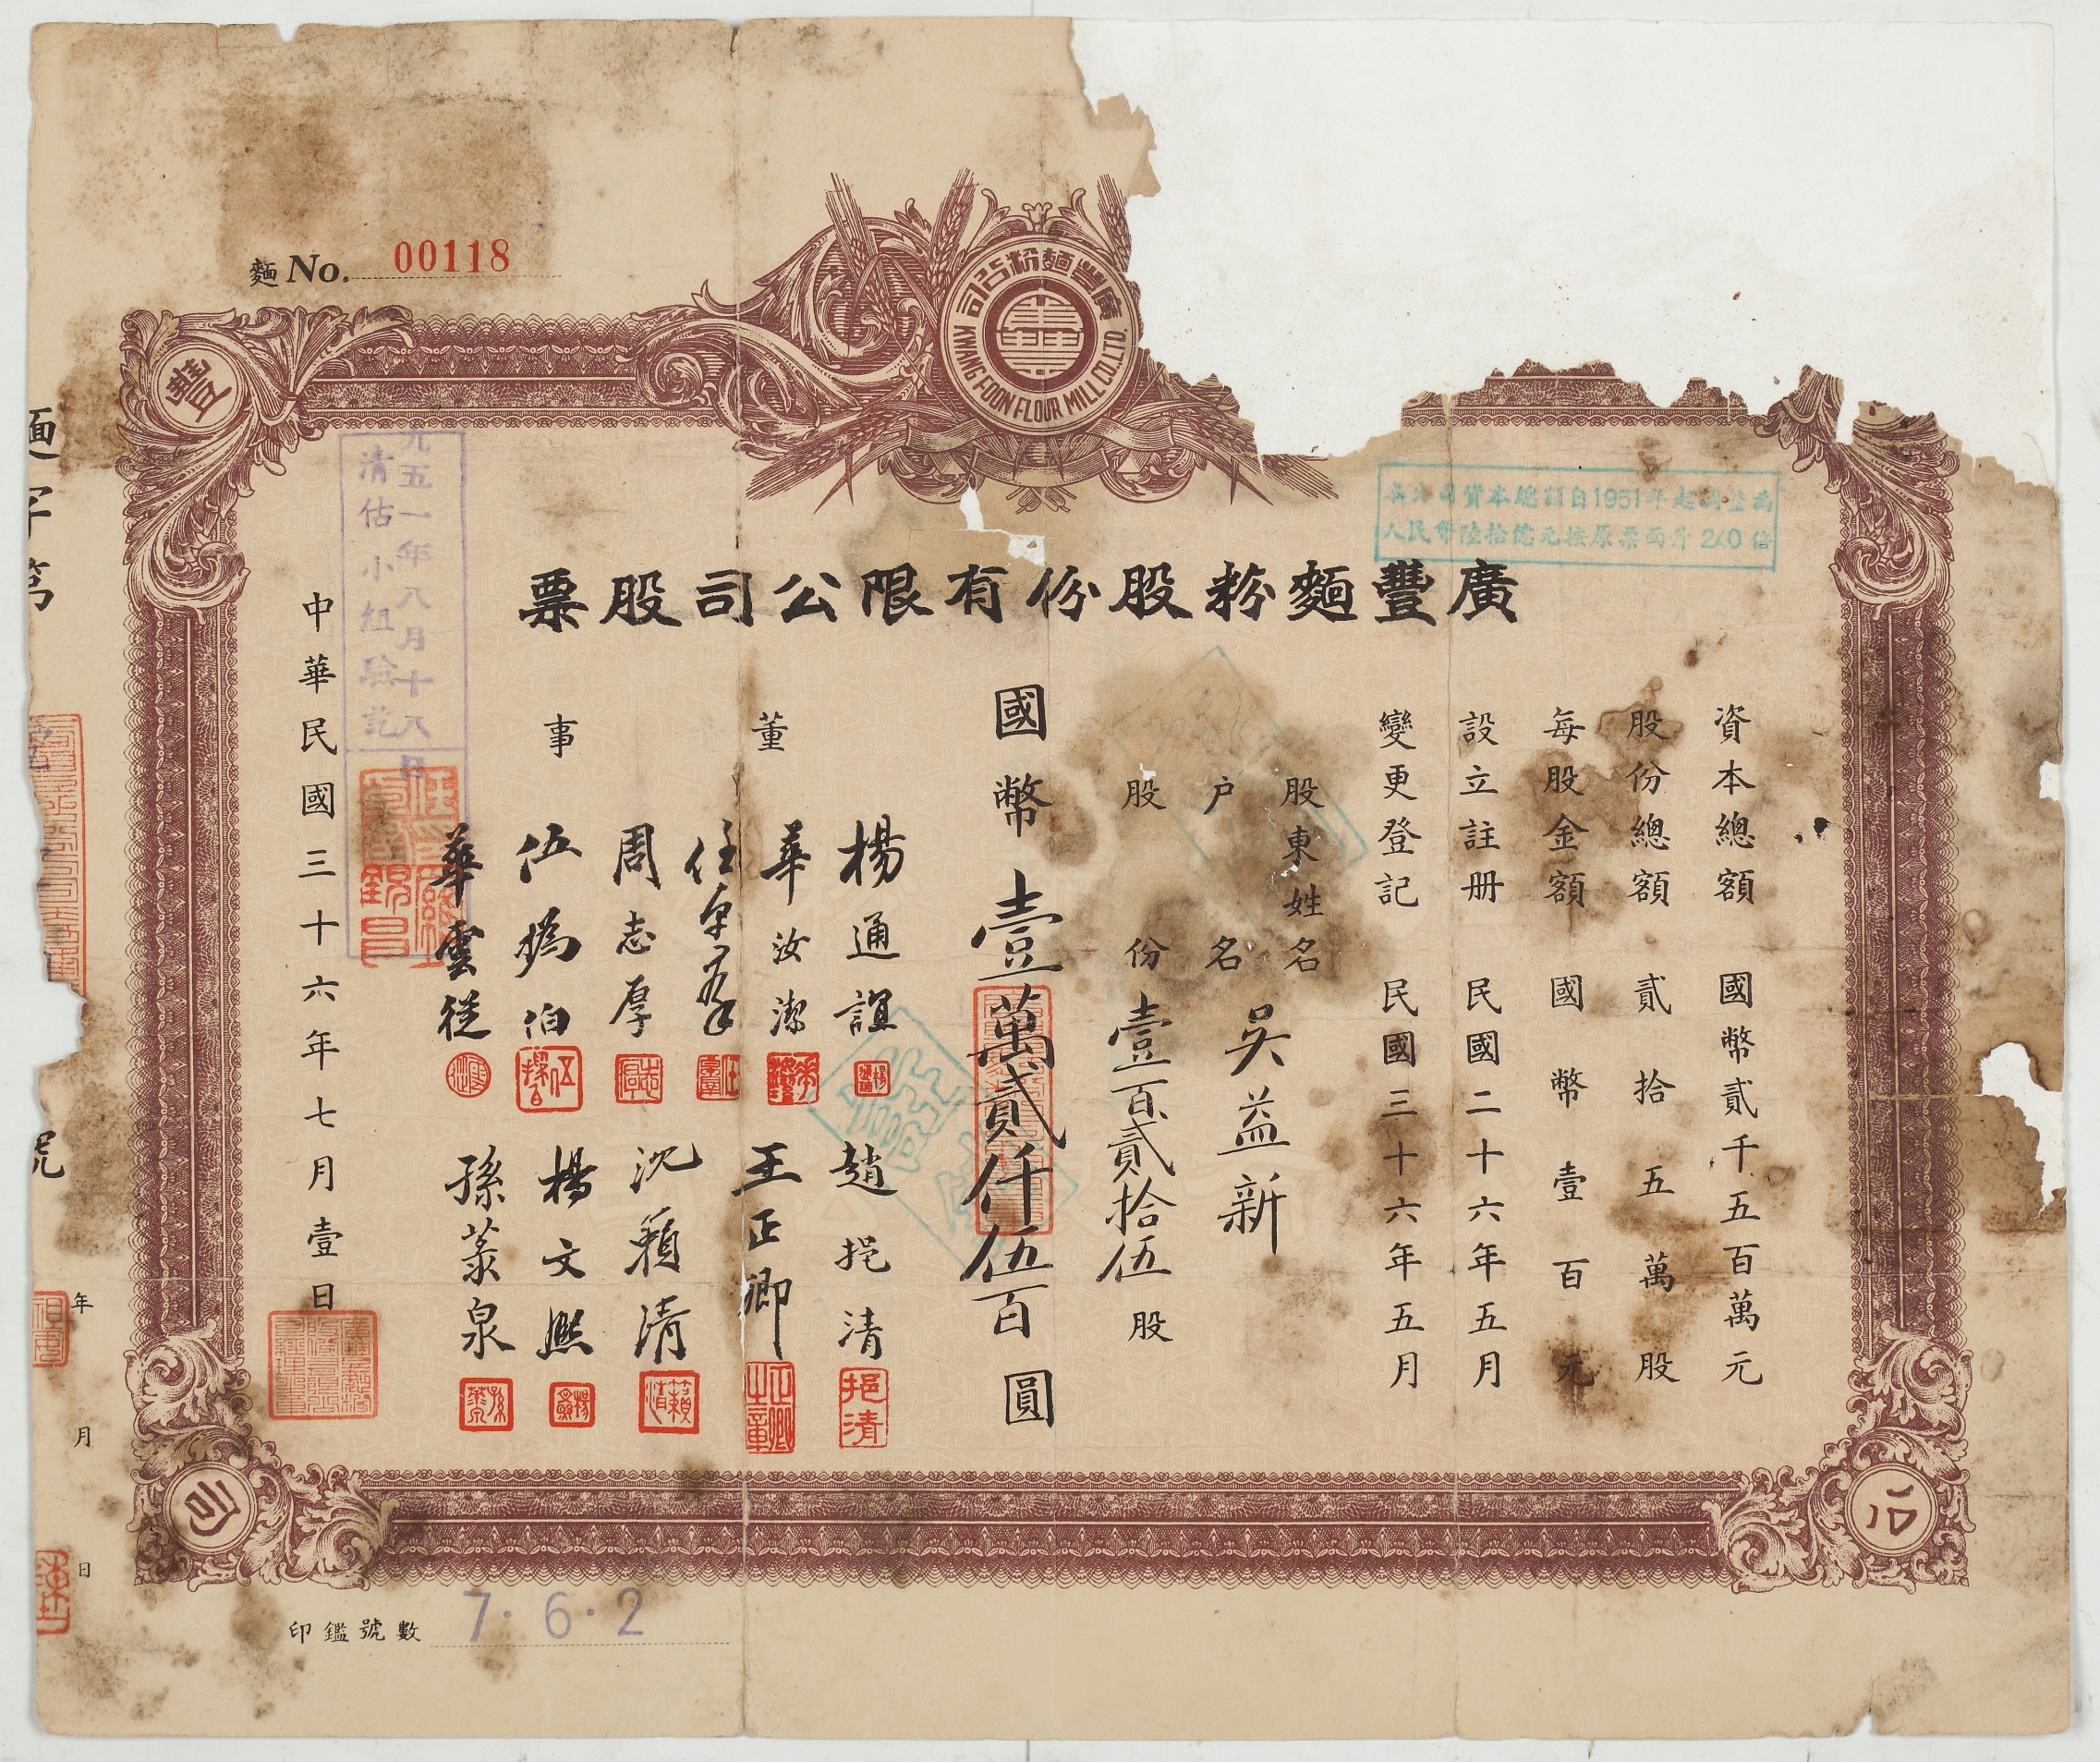 麵 No. 00118
廣豐麵粉公司
KWANG FOON FLOUR MILL CO. LTD.
豐
司
公
本公司資本總額自1951年起調整為
人民幣陸拾億元按原票面升240倍
廣豐麵粉股份有限公司股票
資本總額 國幣貳千五百萬元
股份總額 貳拾五萬股
每股金額 國幣壹百元
設立註册 民國二十六年五月
變更登記 民國三十六年五月
股東姓名
户名 吳益新
股份 壹百貳拾伍股
國幣 壹萬貳仟伍百圓
董事
楊通誼
華汝潔
任卓羣
周志厚
伍
伯
華雲從
趙挹清
王正卿
沈籟清
楊文熙
孫蒸泉
挹清
正卿之章
籟清
志厚
中華民國三十六年七月壹日
九五一年八月十八日
清估小組驗訖
麵字第
號
年
月
日
印鑑號數 7.6.2